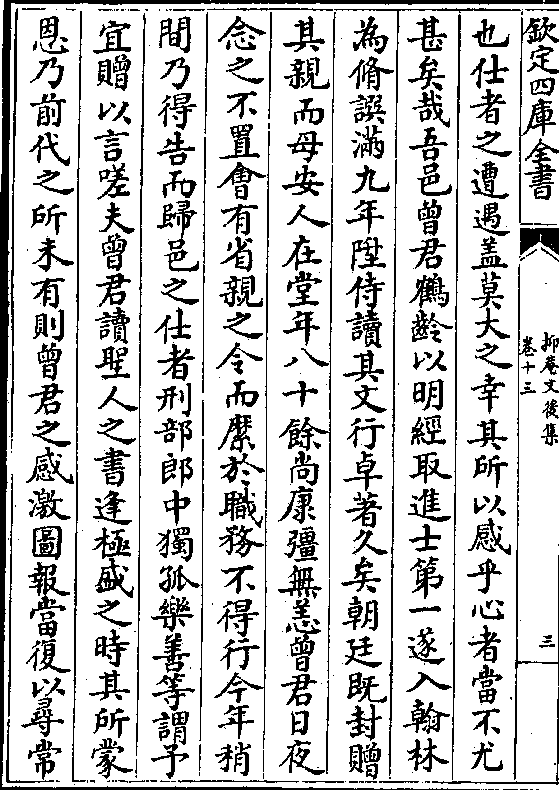 欽定四庫全書
抑菴文後集
卷十三
三
也仕者之遭遇盖莫大之幸其所以感乎心者當不尤
甚矣哉吾邑曾君鶴齡以明經取進士第一遂入翰林
為脩譔滿九年陞侍讀其文行卓著久矣朝廷既封贈
其親而母安人在堂年八十餘尚康彊無恙曾君日夜
念之不置會有省親之令而縻於職務不得行今年稍
間乃得告而歸邑之仕者刑部郎中獨孤樂善等謂予
宜贈以言嗟夫曾君讀聖人之書逢極盛之時其所蒙
恩乃前代之所未有則曾君之感激圖報當復以尋常